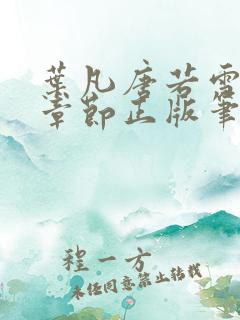 葉凡唐若雪
章節正版筆
程一方
未经同意禁止转载